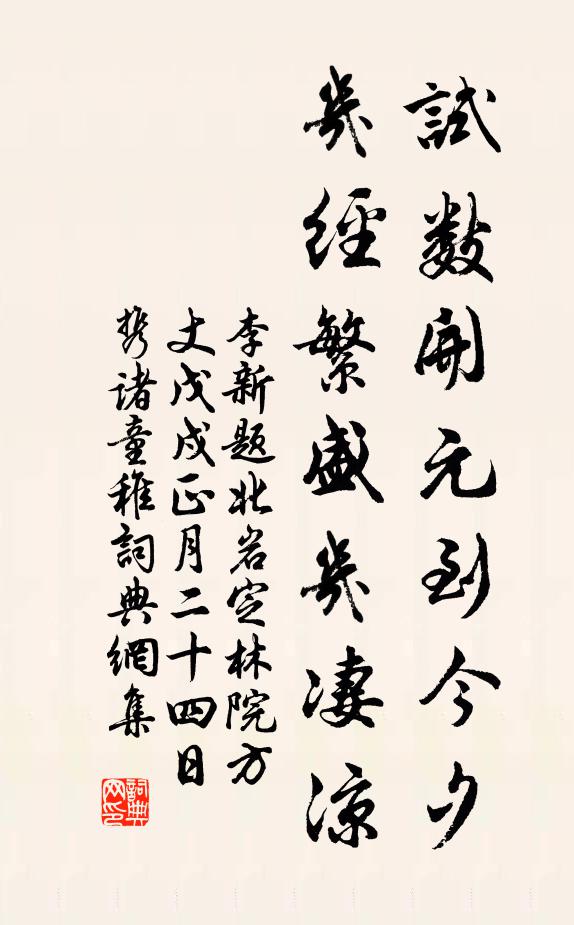 試數開元到今夕
幾經繁盛幾凄涼
李新题北岩定林院方
丈戊戌正月二十四日
携諸童稚詞典網集
詞典
网印